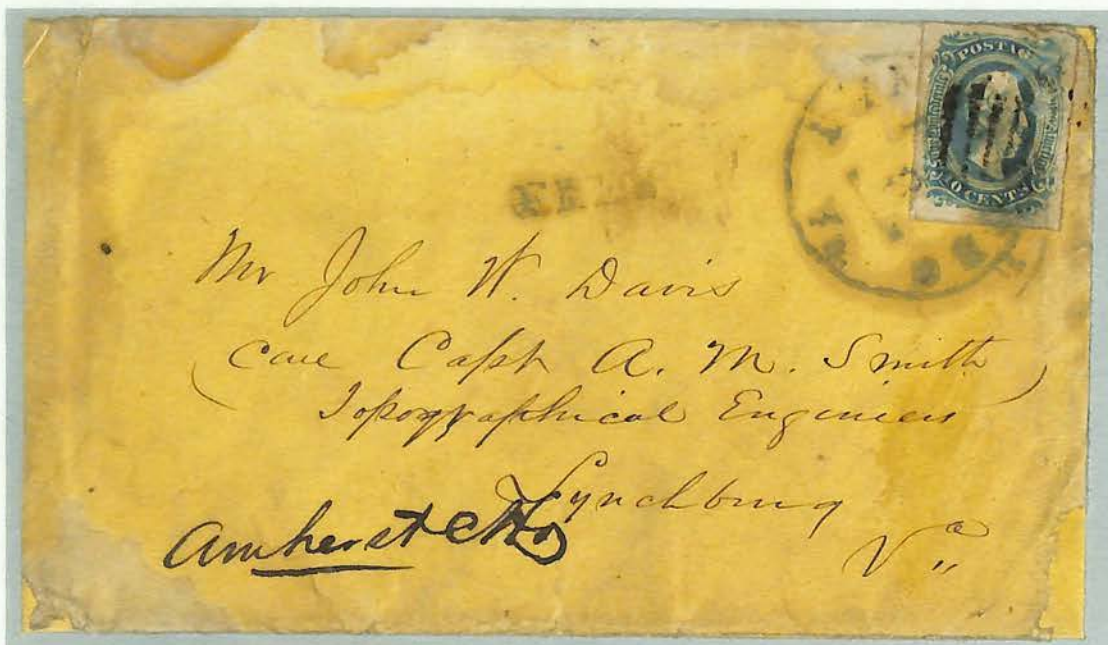 POSTAG
CENTS
Mr John W. Davis
(Care Capt A. M. Smith
Topographical Engineers)
Lynchburg
Vª "
Amherst CHo